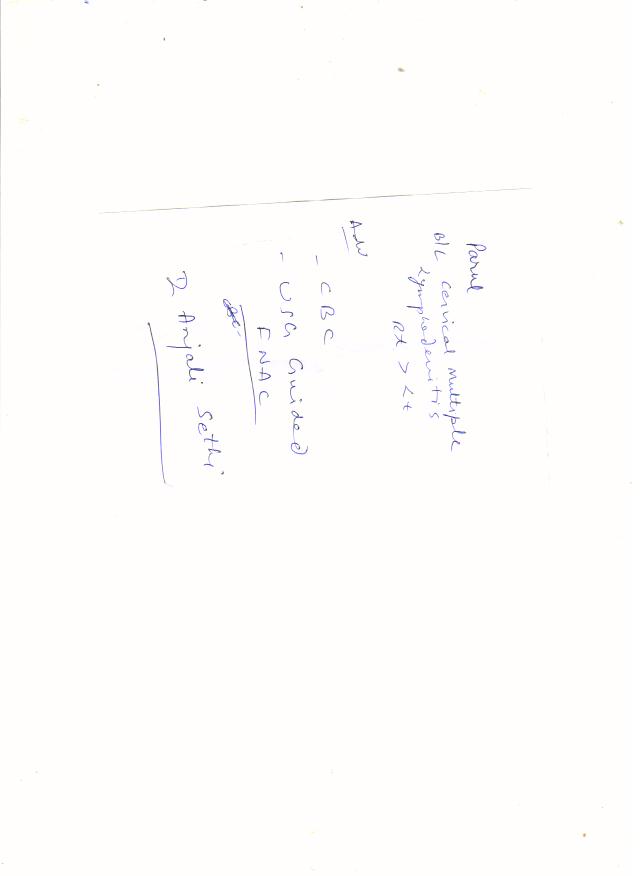 Parul
B/L Cervical Multiple
Lymphadenitis
Rt > Lt
Adv
- CBC
- USG Guided
FNAC
Dr Anjali Sethi